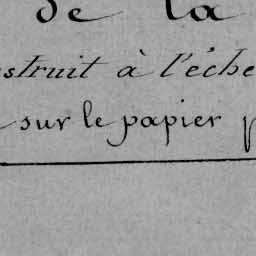 de la
struit à l'éche
sur le papier p